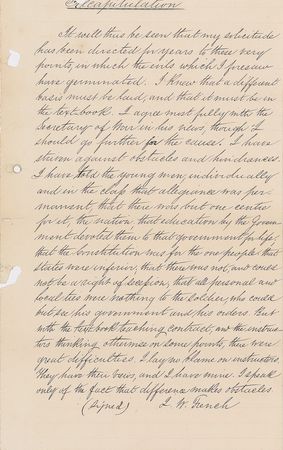 Recapitulation
It will thus be seen that my solicitude
has been directed for years to these very
points, in which the evils which I presume
have germinated. I knew that a different
basis must be laid, and that it must be in
the text-book. I agree most fully with the
Secretary of War in his views, though I
should go further for the cause. I have
striven against obstacles and hindrances.
I have told the young men, individually
and in the class that allegiance was per-
manent, that there was but one centre
for it, the nation that education by the Govern-
ment devoted them to that government for life,
that the Constitution was for the one people, that
states were inferior, that there was not, and could
not be a right of secession, that all personal and
local ties were nothing to the soldier, who could
but see his government and his orders. But
with the text-book teaching contract, and the instruc-
tors thinking otherwise on some points, there were
great difficulties. I lay no blame on instructors.
They have their views, and I have mine. I speak
only of the fact that difference makes obstacles.
(Signed) J. W. French